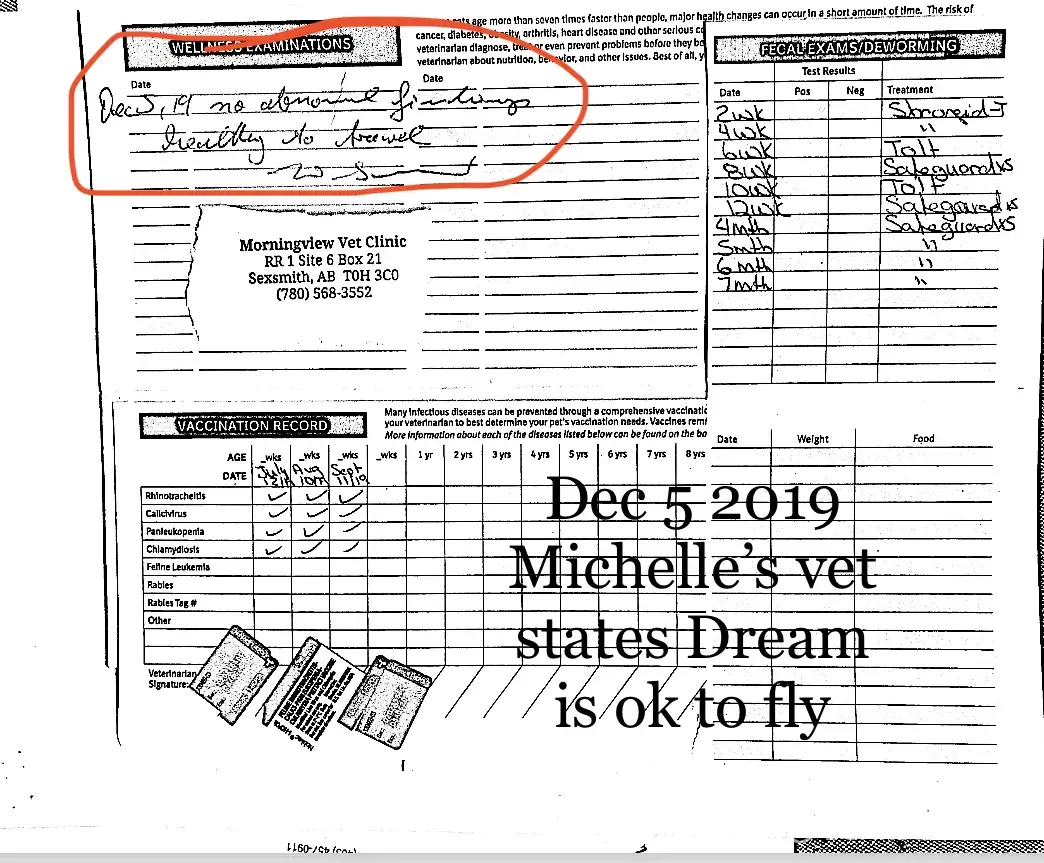 ats age more than seven times faster than people, major health changes can occur in a short amount of time. The risk of
cancer, diabetes, obesity, arthritis, heart disease and other serious co
veterinarian diagnose, treat or even prevent problems before they be
veterinarian about nutrition, behavior, and other issues. Best of all, y
WELLNESS EXAMINATIONS
Date Date
Dec 5, 19 no abnormal findings
healthy to travel
Morningview Vet Clinic
RR 1 Site 6 Box 21
Sexsmith, AB T0H 3C0
(780) 568-3552
FECAL EXAMS/DEWORMING
Test Results
Date Pos Neg Treatment
2wk Strongid-T
4wk "
6wk Tolt
8wk Safeguardx5
10wk Tolt
12wk Safeguardx5
4mth Safeguardx5
5mth "
6mth "
7mth "
VACCINATION RECORD
Many infectious diseases can be prevented through a comprehensive vaccinatio
your veterinarian to best determine your pet's vaccination needs. Vaccines remi
More information about each of the diseases listed below can be found on the ba
AGE _wks _wks _wks _wks 1 yr 2 yrs 3 yrs 4 yrs 5 yrs 6 yrs 7 yrs 8 yrs
DATE July Aug Sept 11/19
Rhinotracheitis ✓ ✓ ✓
Calicivirus ✓ ✓ ✓
Panleukopenia ✓ ✓ ✓
Chlamydiosis ✓ ✓ ✓
Feline Leukemia
Rabies
Rabies Tag #
Other
Veterinarian
Signature:
Date Weight Food
Dec 5 2019
Michelle's vet
states Dream
is ok to fly